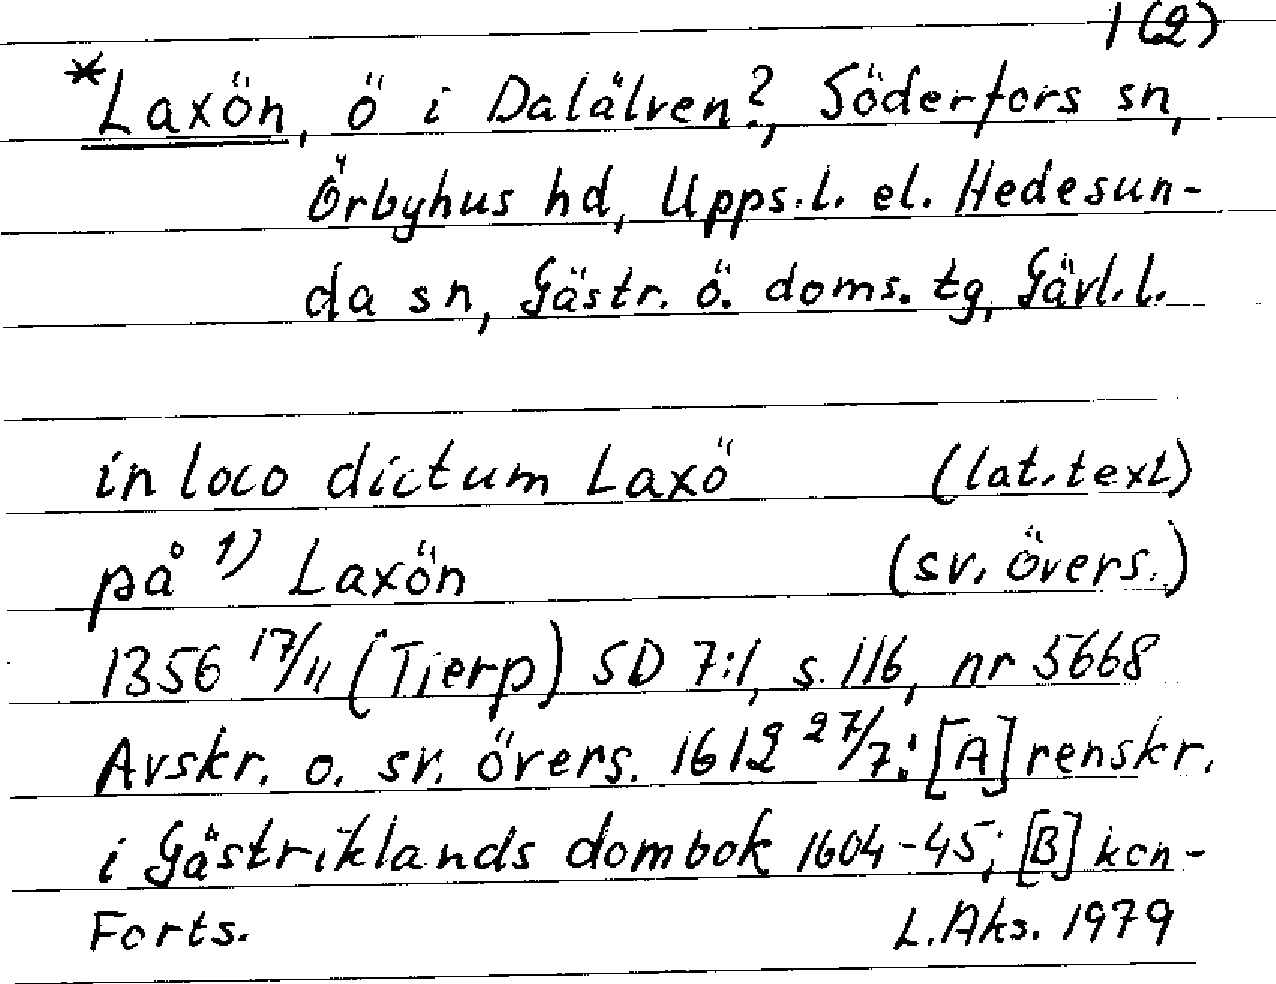 1 (2)
*Laxön, ö i Dalälven?, Söderfors sn,
Örbyhus hd, Upps.l. el. Hedesun-
da sn, Gästr. ö. doms. tg, Gävl.l.
in loco dictum Laxö (lat. text)
på 1) Laxön (sv. övers.)
1356 17/11 (Tierp) SD 7:1, s. 116, nr 5668
Avskr. o. sv. övers. 1612 27/7: [A] renskr.
i Gästriklands dombok 1604-45; [B] kon-
Forts. L. Aks. 1979